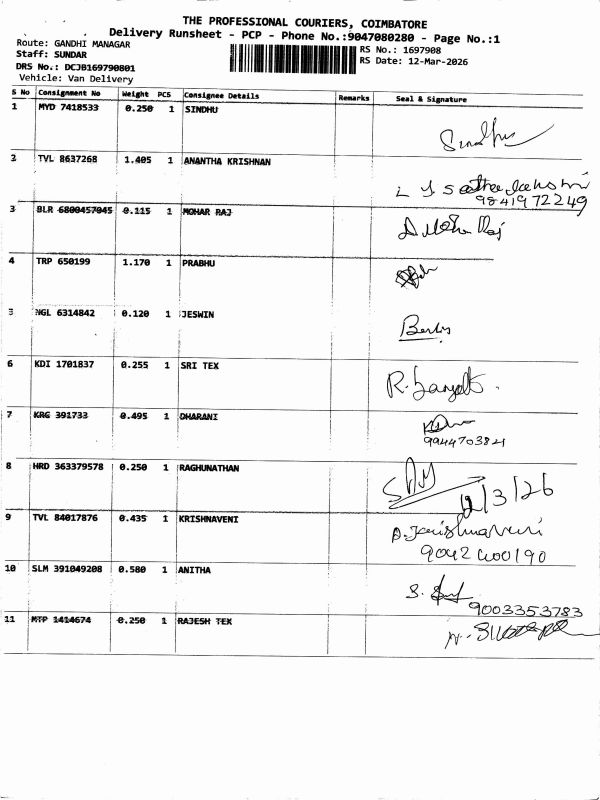 THE PROFESSIONAL COURIERS, COIMBATORE
Delivery Runsheet - PCP - Phone No.:9047080280 - Page No.:1
Route: GANDHI MANAGAR
RS No.: 1697908
Staff: SUNDAR
RS Date: 12-Mar-2026
DRS No.: DCJB169790801
Vehicle: Van Delivery
S No Consignment No Weight PCS Consignee Details Remarks Seal & Signature
1 MYD 7418533 0.250 1 SINDHU
Sindhu
2 TVL 8637268 1.405 1 ANANTHA KRISHNAN
9841972249
3 BLR 6800457045 0.115 1 MOHAR RAJ
4 TRP 650199 1.170 1 PRABHU
5 NGL 6314842 0.120 1 JESWIN
6 KDI 1701837 0.255 1 SRI TEX
7 KRG 391733 0.495 1 DHARANI
9944703821
8 HRD 363379578 0.250 1 RAGHUNATHAN
9 TVL 84017876 0.435 1 KRISHNAVENI
10 SLM 391049208 0.580 1 ANITHA
9003353783
11 MTP 1414674 0.250 1 RAJESH TEX